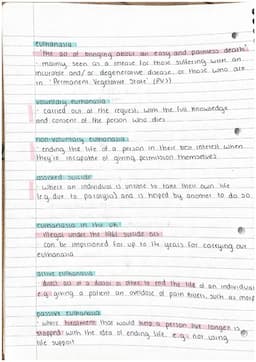 euthanasia
'the act of bringing about an easy and painless death'
- mainly seen as a release for those suffering with an
incurable and/or degenerative disease, or those who are
in 'Permanent Vegetative State' (PVS)
voluntary euthanasia:
- carried out at the request, with the full knowledge
and consent of the person who dies
non-voluntary euthanasia:
- ending the life of a person in their best interest when
they're incapable of giving permission themselves
assisted suicide:
- where an individual is unable to take their own life
(e.g. due to paralysis) and is helped by another to do so
euthanasia in the UK:
- illegal under the 1961 suicide act
- can be imprisoned for up to 14 years for carrying out
euthanasia
active euthanasia:
- direct act of a doctor or other to end the life of an individual
e.g. giving a patient an overdose of pain killers, such as
passive euthanasia:
- where treatment that would keep a person live longer is
stopped with the idea of ending life. e.g. not using
life support